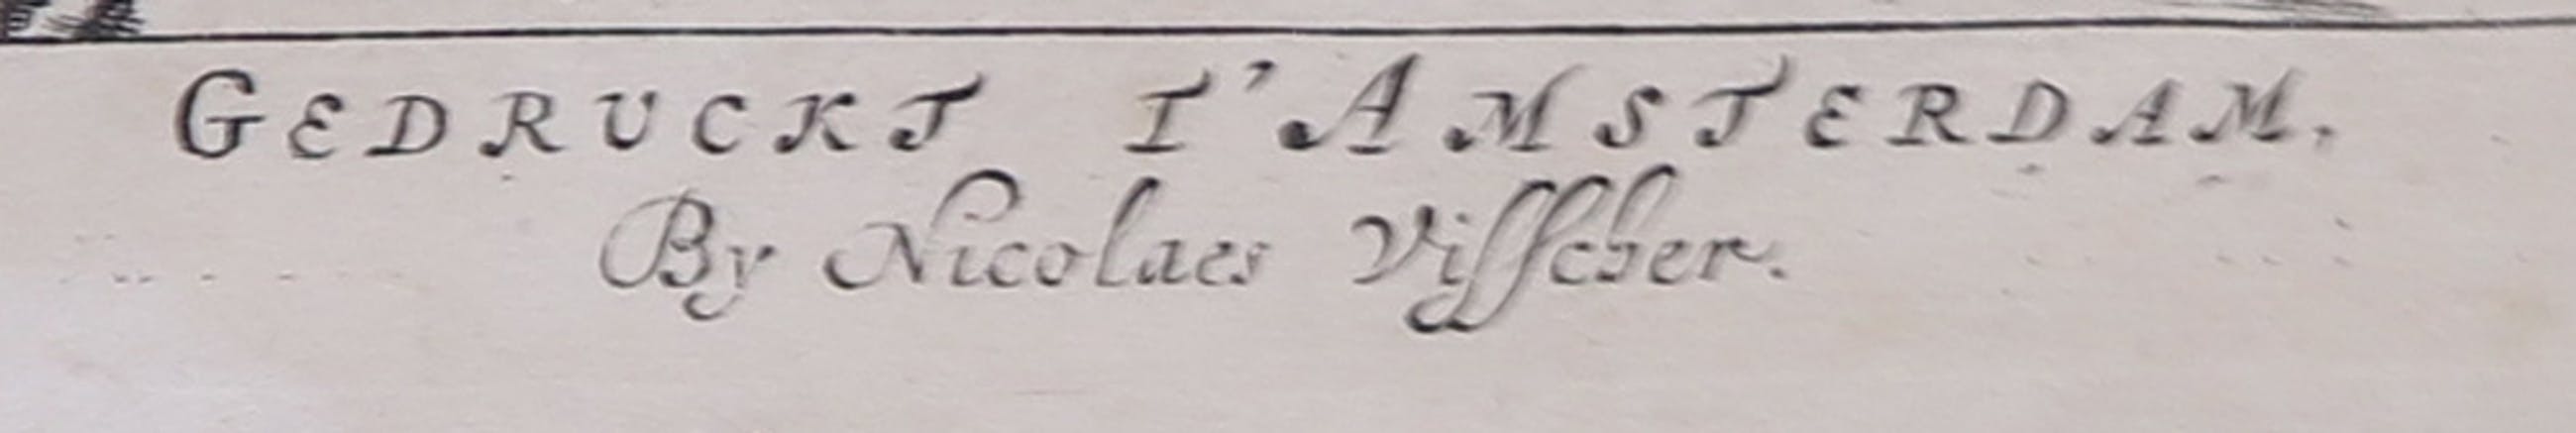 GEDRUCKT T'AMSTERDAM.
By Nicolaes Visscher.